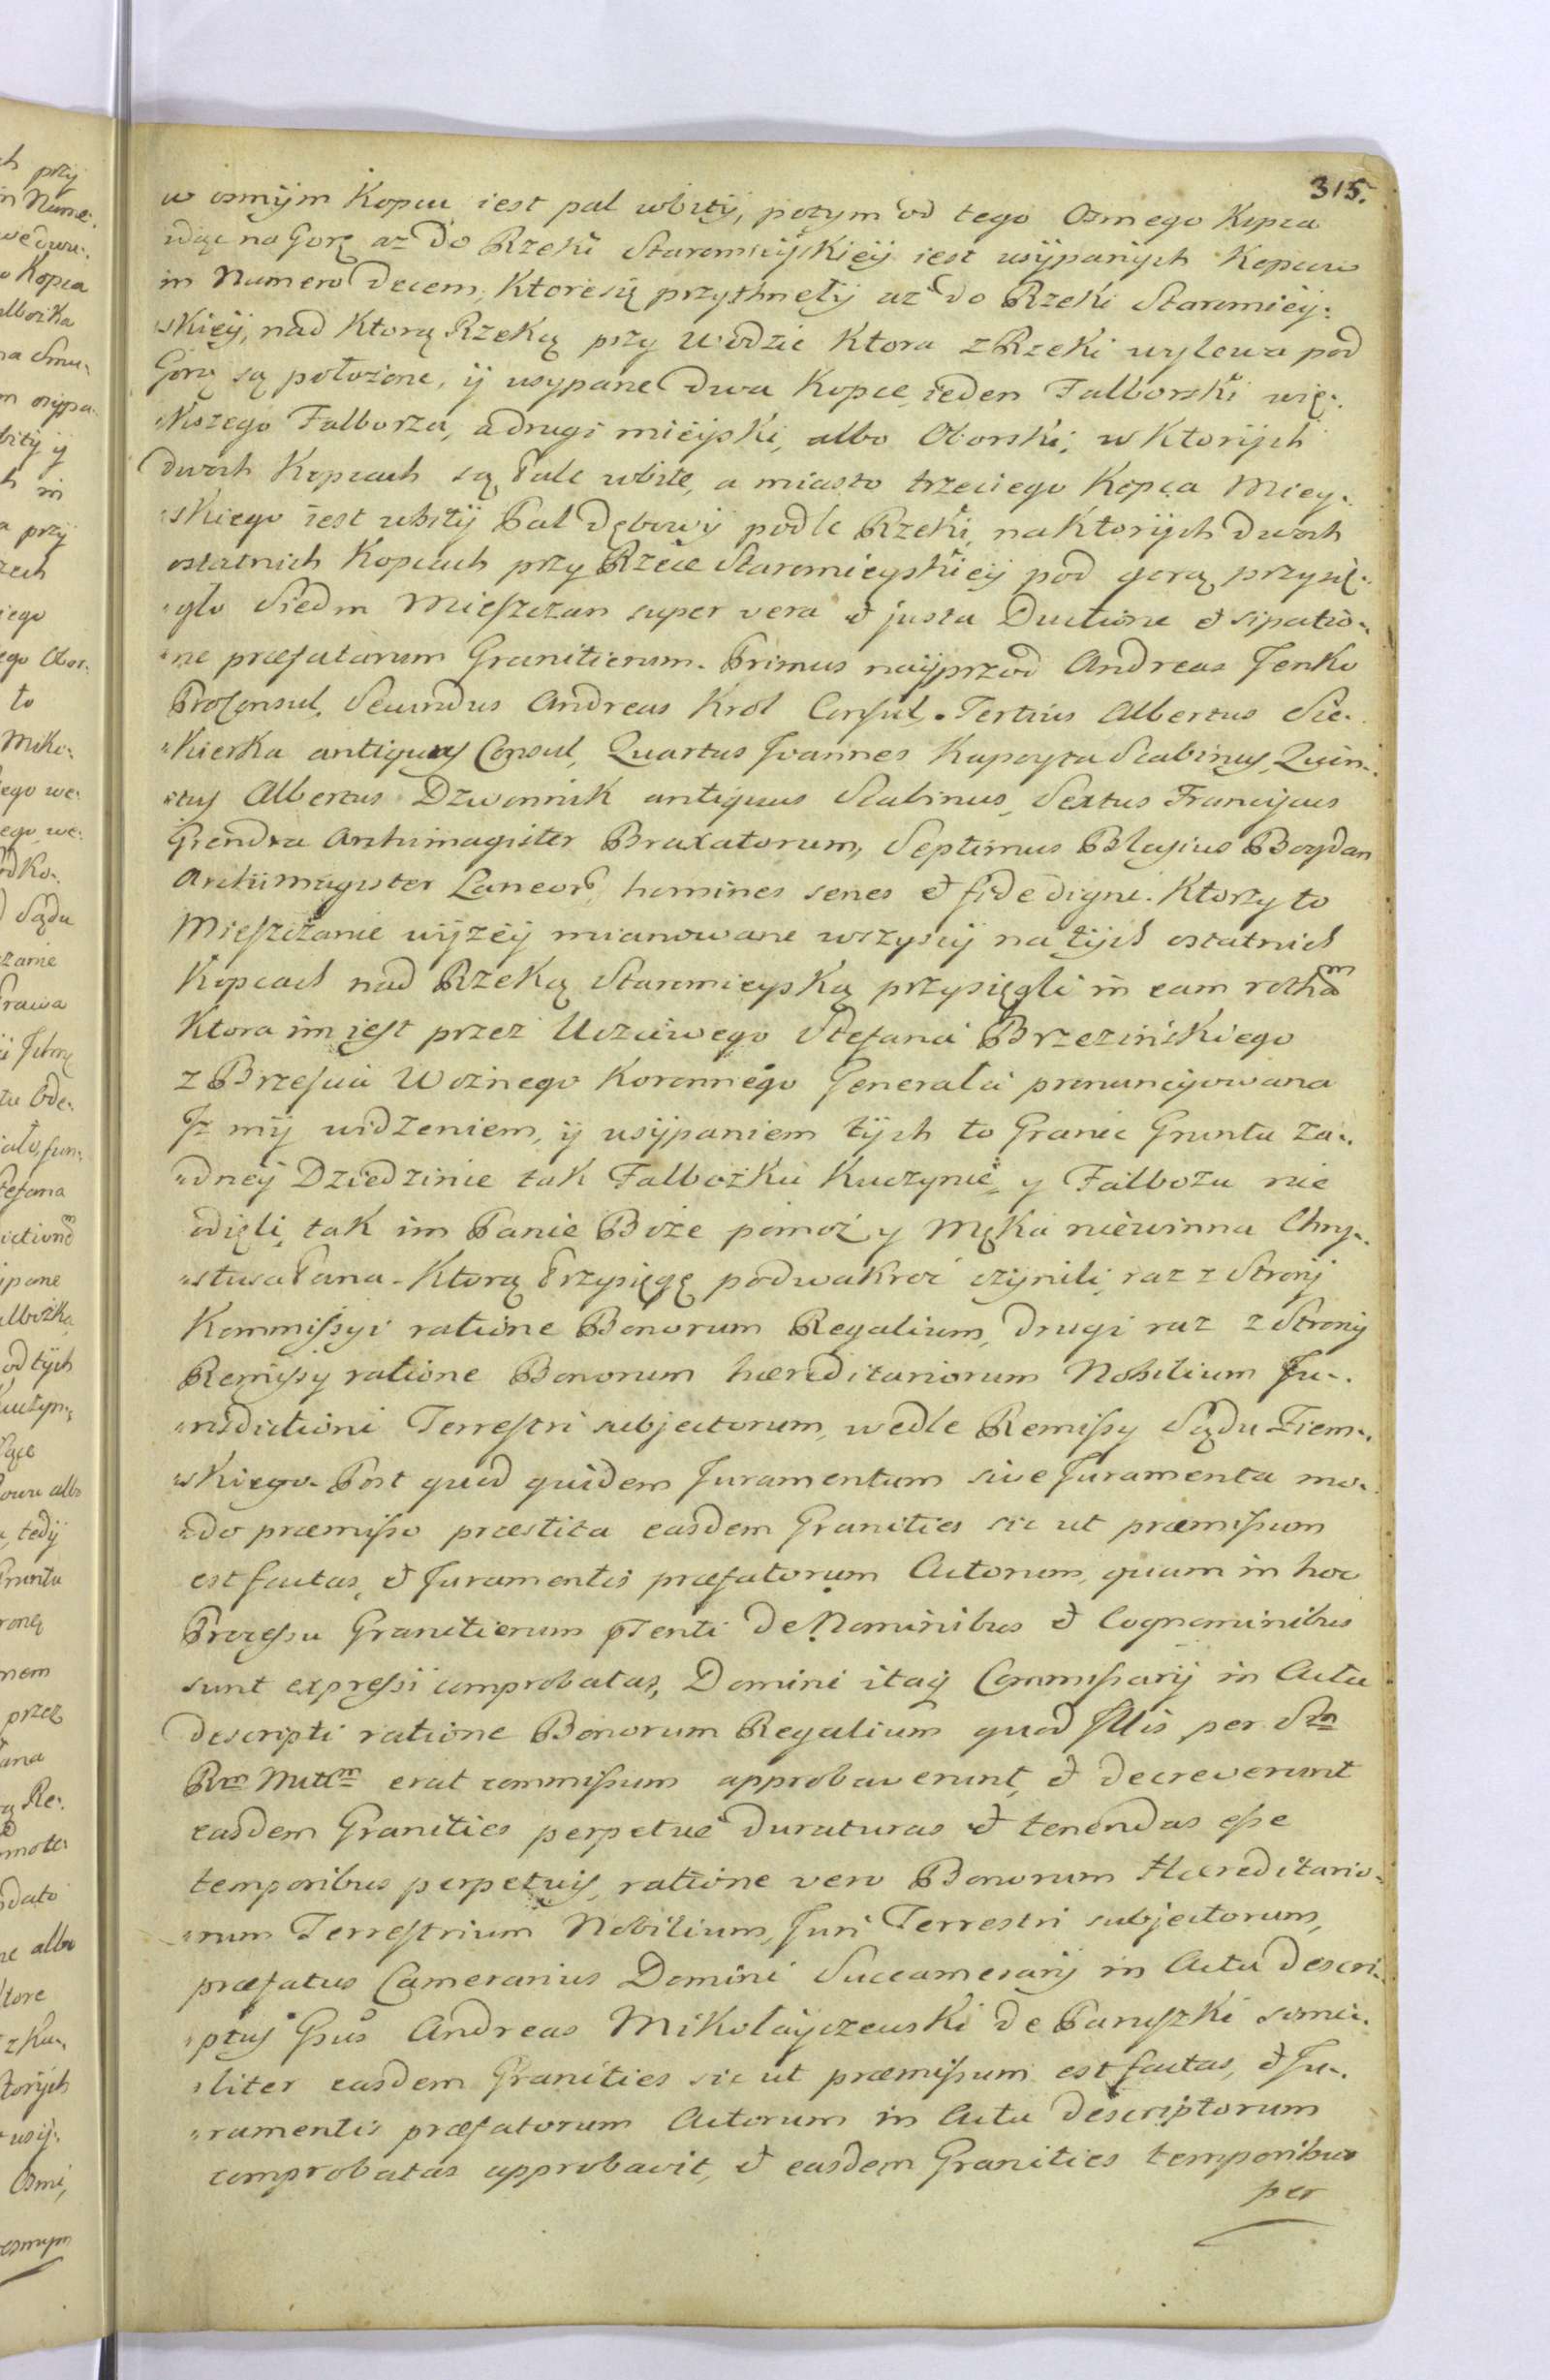 315.
w osmÿm Kopcu iest pal wbitÿ, potym od tego Osmego Kopca
idąc na Gorę az do Rzeki Staromieÿskieÿ iest usÿpanÿch Kopcow
in Numero decem, Ktore się przytknełÿ az do Rzeki Staromieÿ:
skieÿ, nad Ktorą Rzeką przy Wodzie Ktora z Rzeki wylewa pod
Gorą są położone, ÿ usypane dwa Kopce, ieden Falborski wię:
kszego Falborza, a drugi mieÿski, albo Oborski, w Ktorÿch
dwoch Kopcach są Pale wbite, a miasto trzeciego Kopca Miey:
skiego iest wbitÿ Pal dębowÿ podle Rzeki, na Ktorÿch dwoch
ostatnich Kopcach przy Rzece Staromieyskieÿ pod gorą przysię:
gło Siedm Mieszczan super vera et justa Ductione et sipatio:
ne præfatarum Granitierum. Primus naÿprzod Andreas Jenko
Proconsul, Secundus Andreas Krol Consul, Tertius Albertus Sie:
kierka antiquus Consul, Quartus Joannes Kapoyta Scabinus, Quin:
tus Albertus Dzwonnik antiquus Scabinus, Sextus Franciscus
Grendza Archimagister Braxatorum, Septimus Blasius Bogdan
Archimagister Laneorum, homines senes et fide digni. Ktorzy to
Mieszczanie wÿzeÿ mianowane wszyscÿ na tÿch ostatnich
Kopcach nad Rzeką Staromieyską przysięgli in eam rotham
Ktora im iest przez Uczciwego Stefana Brzezińskiego
z Brzescia Woznego Koronnego Generała pronuncyowana
Jz mÿ widzeniem, ÿ usÿpaniem tÿch to Granic Gruntu za:
dneÿ Dziedzinie tak Falbożku Kuczynie, y Falbozu nie
odięli, tak im Panie Boże pomoż y Męka niewinna Chry:
stusa Pana. Ktorą Przysięgę podwakroć czÿnili, raz z Stronÿ
Kommissyi ratione Bonorum Regalium, drugi raz z Stronÿ
Remissy ratione Bonorum hæreditariorum Nobilium Ju:
risdictioni Terrestri subjectorum, wedle Remissy Sądu Ziem:
skiego. Post quod quidem Juramentum sive Juramenta mo:
do præmisso præstita easdem Granities sic ut præmissum
est factas, et Juramentis præfatorum Actorum, quam in hoc
Processu Granitierum pnti de Nominibus et Cognominibus
sunt expressi comprobatas, Domini itaq Commissarij in Actu
descripti ratione Bonorum Regalium quod Illis per Sm
Rm Mttm erat commissum approbaverunt, et decreverunt
easdem Granities perpetue duraturas et tenendas esse
temporibus perpetuis, ratione vero Bonorum Hæreditario:
rum Terrestrium Nobilium, Juri Terrestri subjectorum,
præfatus Camerarius Domini Succamerarij in Actu descri:
ptus Gsus Andreas Mikołayczewski de Paruszki simi:
liter easdem Granities sic ut præmissum est factas, et Ju:
ramentis præfatorum Actorum in Actu descriptorum
comprobatas approbavit, et easdem Granities temporibus
per